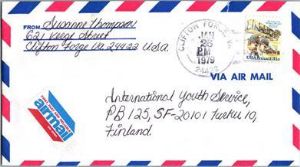 FROM Suzanne Thompson
621 Keege Street
Clifton Forge Va 24422 U.S.A.
CLIFTON FORGE
JAN
PM
1979
24422
VIA AIR MAIL
airmail
International Youth Service,
PB 125, SF-20101 Turku 10,
Finland